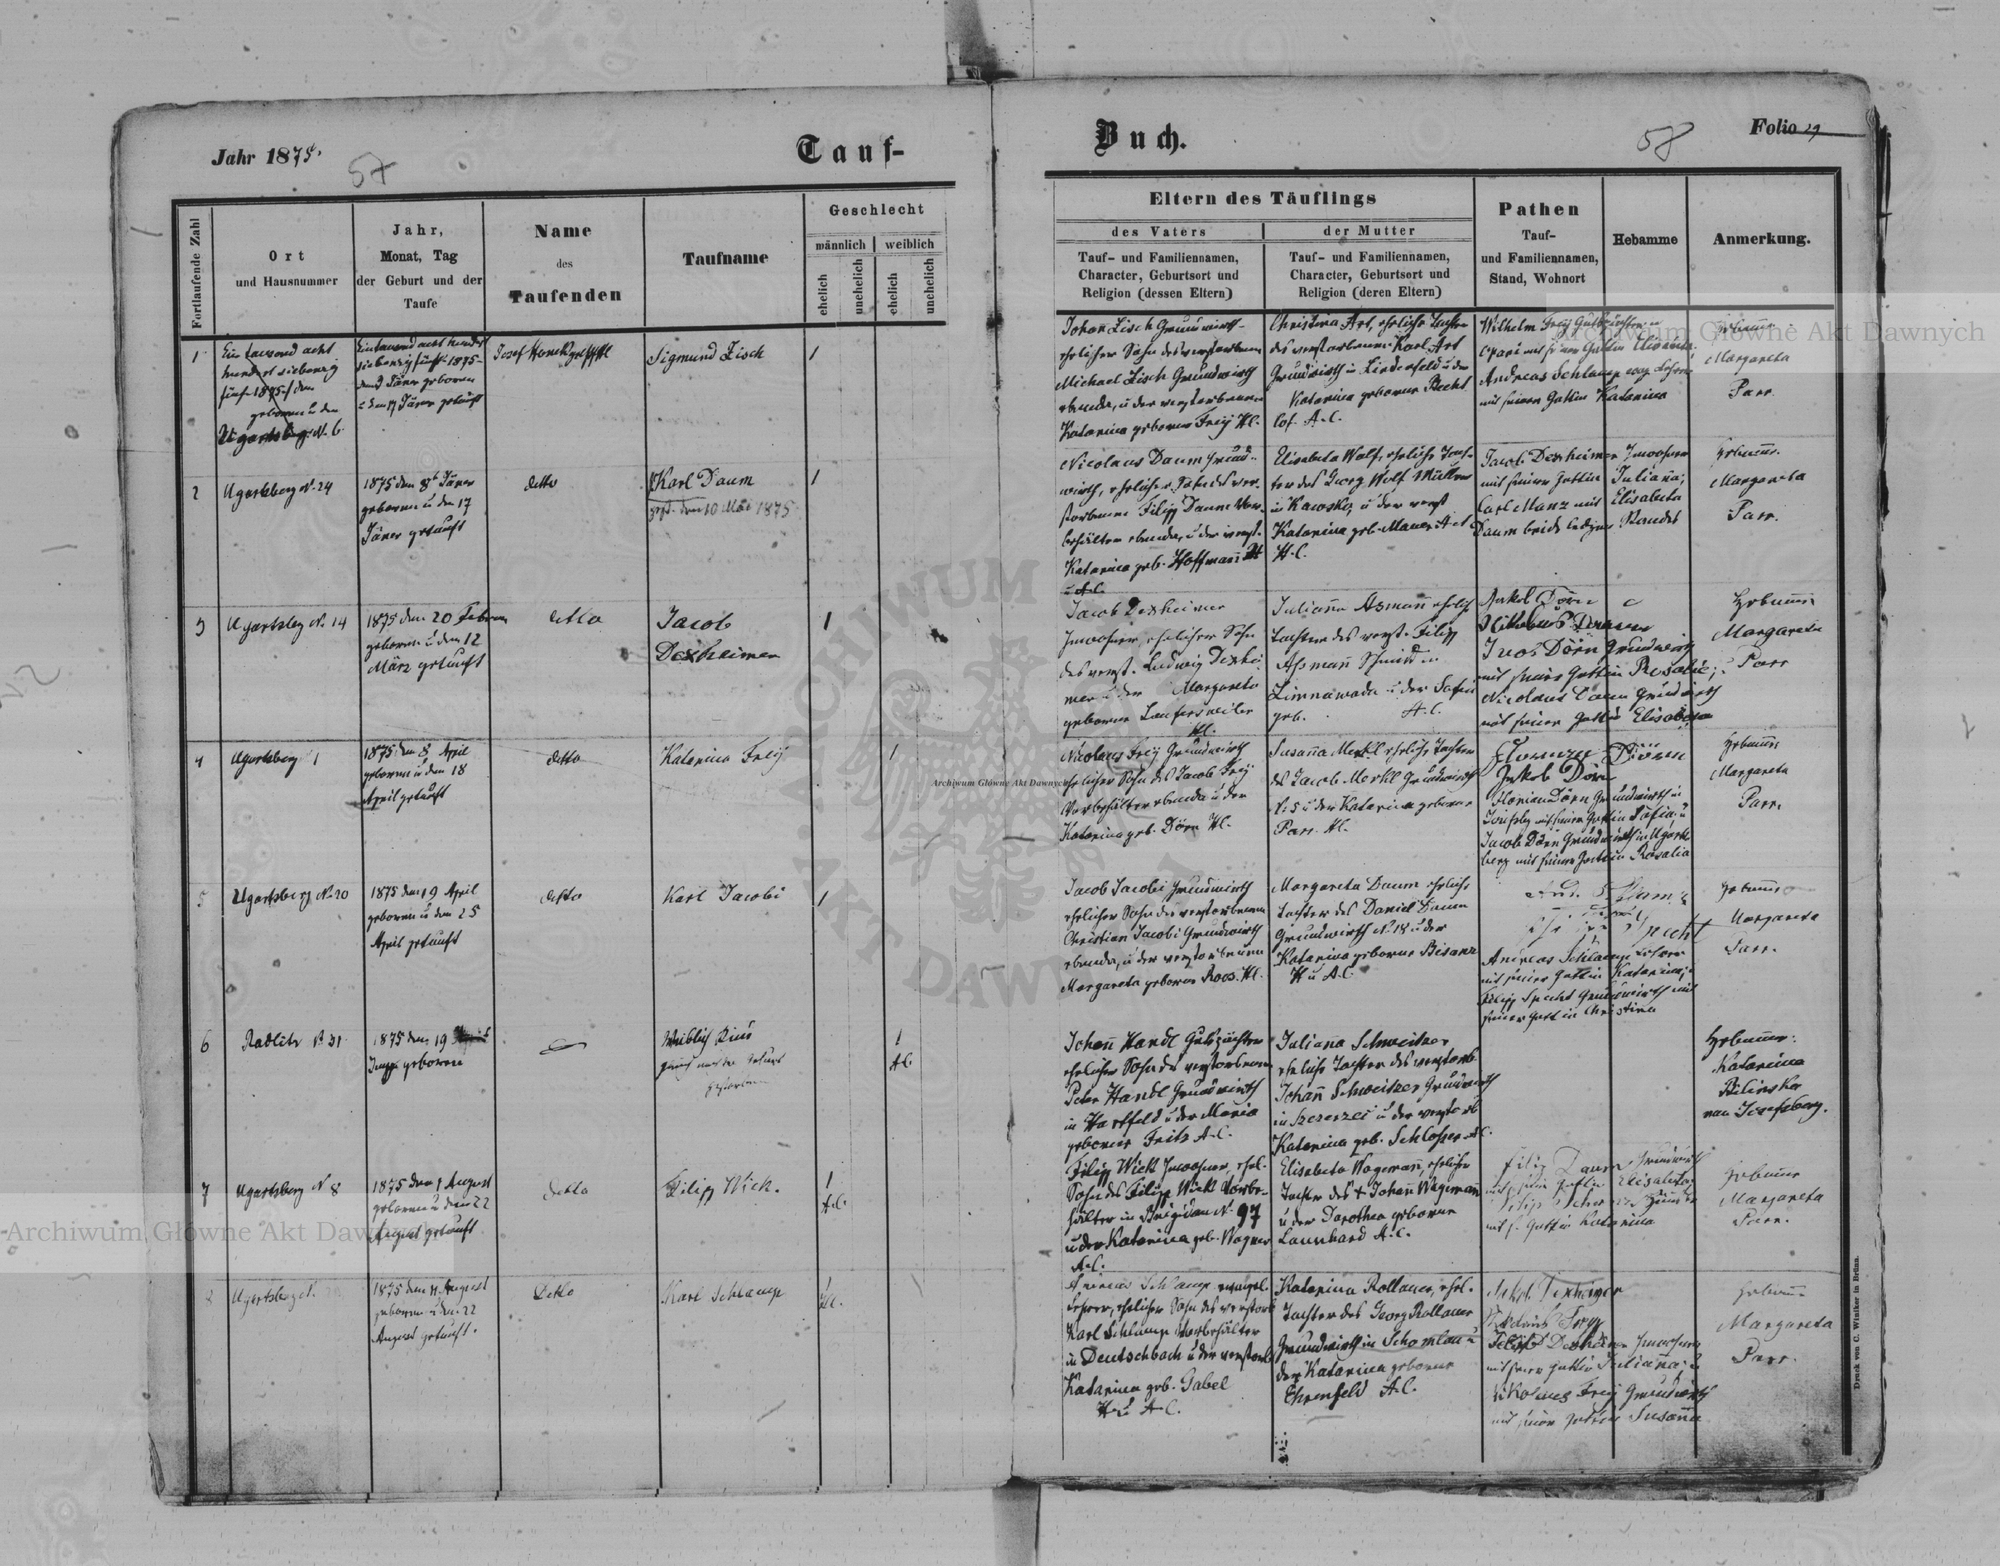 Jahr 1875.
57
Tauf-
Buch.
58
Folio 29
Fortlaufende Zahl
Ort
und Hausnummer
Jahr,
Monat, Tag
der Geburt und der
Taufe
Name
des
Taufenden
Taufname
Geschlecht
männlich
weiblich
ehelich
unehelich
ehelich
unehelich
Eltern des Täuflings
des Vaters
der Mutter
Tauf- und Familiennamen,
Character, Geburtsort und
Religion (dessen Eltern)
Tauf- und Familiennamen,
Character, Geburtsort und
Religion (deren Eltern)
Pathen
Tauf-
und Familiennamen,
Stand, Wohnort
Hebamme
Anmerkung.
1
Ein tausend acht
hundert siebenzig
fünf 1875 den
geboren u den
Ugartsberg N. 6
Ein tausend acht hundert
siebenzig fünf 1875
Jäner geboren
Jäner getauft
Josef
Sigmund Zisch
1
Johan Zisch Grundwirth
ehelicher Sohn des verstorbenen
Michael Zisch Grundwirth
ebenda, u der verstorbenen
Katarina geborne Frey H.C.
Christina Art, eheliche Tochter
des verstorbenen Karl Art
Grundwirth in Linderfeld u der
Katarina geborne Becht
A.C.
Wilhelm Frey
mit seiner Gattin Elisabeta;
Andreas Schlamp evang Lehrer
mit seiner Gattin Katarina
Hebamme
Margareta
Parr.
2
Ugartsberg N. 24
1875 den 8t Jäner
geboren u den 17
Jäner getauft
detto
Karl Daum
gest. den 10 Mai 1875
1
Nicolaus Daum Grund-
wirth, ehelicher Sohn des ver-
storbenen Filipp Daum Vor-
behälter ebenda, u der verst.
Katarina geb. Hoffmann H
u A.C.
Elisabeta Wolf, eheliche Toch-
ter des Georg Wolf Müller
in u der verst
Katarina geb. Mauer A.C.
H.C.
Jacob Dexheimer Inwohner
mit seiner Gattin Juliana;
Carl Manz mit Elisabeta
Daum beide ledigen Standes
Hebamme
Margareta
Parr.
3
Ugartsberg N. 14
1875 den 20 Februar
geboren u den 12
März getauft
detto
Jacob
Dexheimer
1
Jacob Dexheimer
Inwohner, ehelicher Sohn
des verst. Ludwig Dexhei-
mer u der Margareta
geborne Laufersweiler
H.C.
Juliana Asmann ehelich
Tochter des verst. Filipp
Asmann Schmied in
Zimnawoda u der Sofia
geb. A.C.
Jakob Dörn
Nikolaus Daum
Jacob Dörn Grundwirth
mit seiner Gattin Rosalia;
Nicolaus Daum Grundwirth
mit seiner Gattin Elisabeta
Hebamme
Margareta
Parr
4
Ugartsberg 1
1875 den 8 April
geboren u den 18
April getauft
detto
Katarina Frey
1
Nicolaus Frey Grundwirth
ehelicher Sohn des Jacob Frey
Vorbehälter ebenda u der
Katarina geb. Dörn H.C.
Susanna Merkl eheliche Tochter
des Jacob Merkl Grundwirth
N. 5 u der Katarina geborne
Parr. H.C.
Florian Dörn
Jakob Dörn
Florian Dörn Grundwirth in
Josefsberg mit seiner Gattin Sofia, u
Jacob Dörn Grundwirth in Ugarts-
berg mit seiner Gattin Rosalia
Hebamme
Margareta
Parr.
5
Ugartsberg N. 20
1875 den 19 April
geboren u den 25
April getauft
detto
Karl Jacobi
1
Jacob Jacobi Grundwirth
ehelicher Sohn des verstorbenen
Christian Jacobi Grundwirth
ebenda, u der verstorbenen
Margareta geborne Roos. H.C.
Margareta Daum eheliche
Tochter des Daniel Daum
Grundwirth N. 18 u der
Katarina geborne Bisanz
H u A.C.
Specht
Andreas Schlamp Lehrer
mit seiner Gattin Katarina;
Filipp Specht Grundwirth mit
seiner Gattin Christina
Hebamme
Margareta
Parr.
6
Radlitz N 31
1875 den 19
geboren
Weiblich Kind
gleich nach der Geburt
gestorben
1
A.C.
Johann Handl Gutspächter
ehelicher Sohn des verstorbenen
Peter Handl Grundwirth
in Hartfeld u der Maria
geborne Fritz A.C.
Juliana Schweitzer
eheliche Tochter des verstorb.
Johann Schweitzer Grundwirth
in Szczerzec u der verstorb
Katarina geb. Schlosser A.C.
Hebamme:
Katarina
Bilinska
von Josefsberg.
7
Ugartsberg N 8
1875 den 1 August
geboren u den 22
August getauft
detto
Filipp Wick.
1
A.C.
Filipp Wick Inwohner, ehel.
Sohn des Filipp Wick Vorbe-
hälter in Brigidau N. 97
u der Katarina geb. Wagner
A.C.
Elisabeta Wagemann, eheliche
Tochter des + Johann Wagemann
u der Dorothea geborne
Launhard A.C.
Filip Daum Grundwirth
mit seiner Gattin Elisabeta;
mit s. Gattin Katarina
Hebamme
Margareta
Parr.
Ugartsberg N.
1875 den 11 August
geboren u den 22
August getauft.
Detto
Karl Schlamp
1
H.C.
Andreas Schlamp evangel.
Lehrer, ehelicher Sohn des verstorb.
Karl Schlamp Vorbehälter
in Deutschbach u der verstorb.
Katarina geb. Gabel
H u A.C.
Katarina Rollauer, ehel.
Tochter des Georg Rollauer
Grundwirth in Schomlau u
der Katarina geborne
Ehrenfeld A.C.
Jakob Dexheimer
Nikolaus Frey
Jakob Dexheimer Inwohner
mit seiner Gattin Juliana; u
Nikolaus Frey Grundwirth
mit seiner Gattin Susanna
Hebamme
Margareta
Parr.
Druck von C. Winiker in Brünn.
Archiwum Główne Akt Dawnych
Archiwum Główne Akt Dawnych
Archiwum Główne Akt Dawnych
ARCHIWUM
AKT DAWNYCH